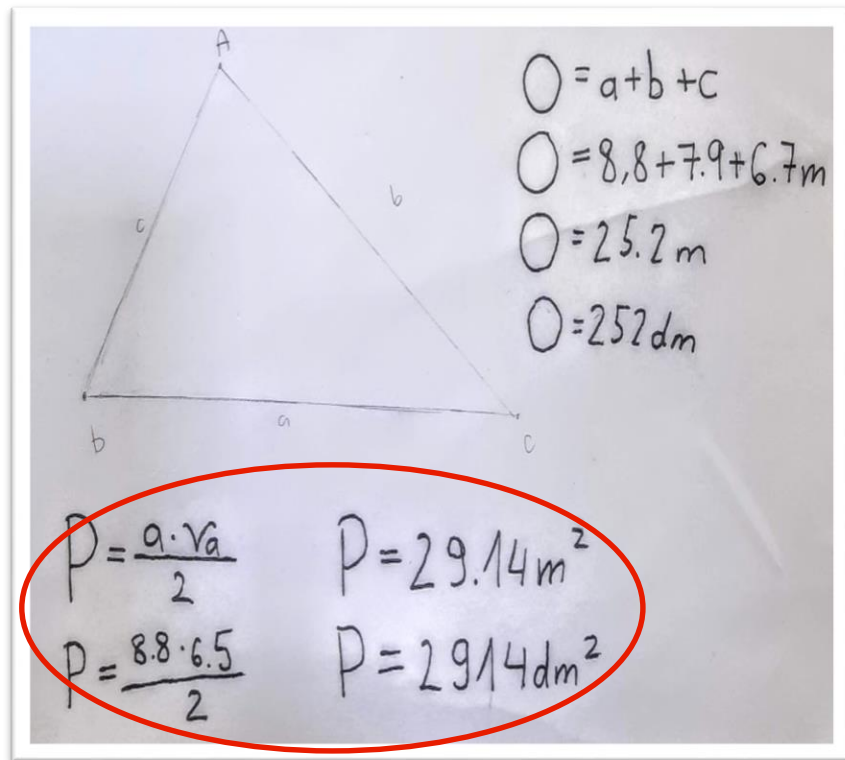 A
c
b
b
a
C
O = a+b+c
O = 8,8+7.9+6.7m
O = 25.2 m
O = 252dm
P = a·va / 2
P = 8.8·6.5 / 2
P = 29.14m²
P = 2914dm²